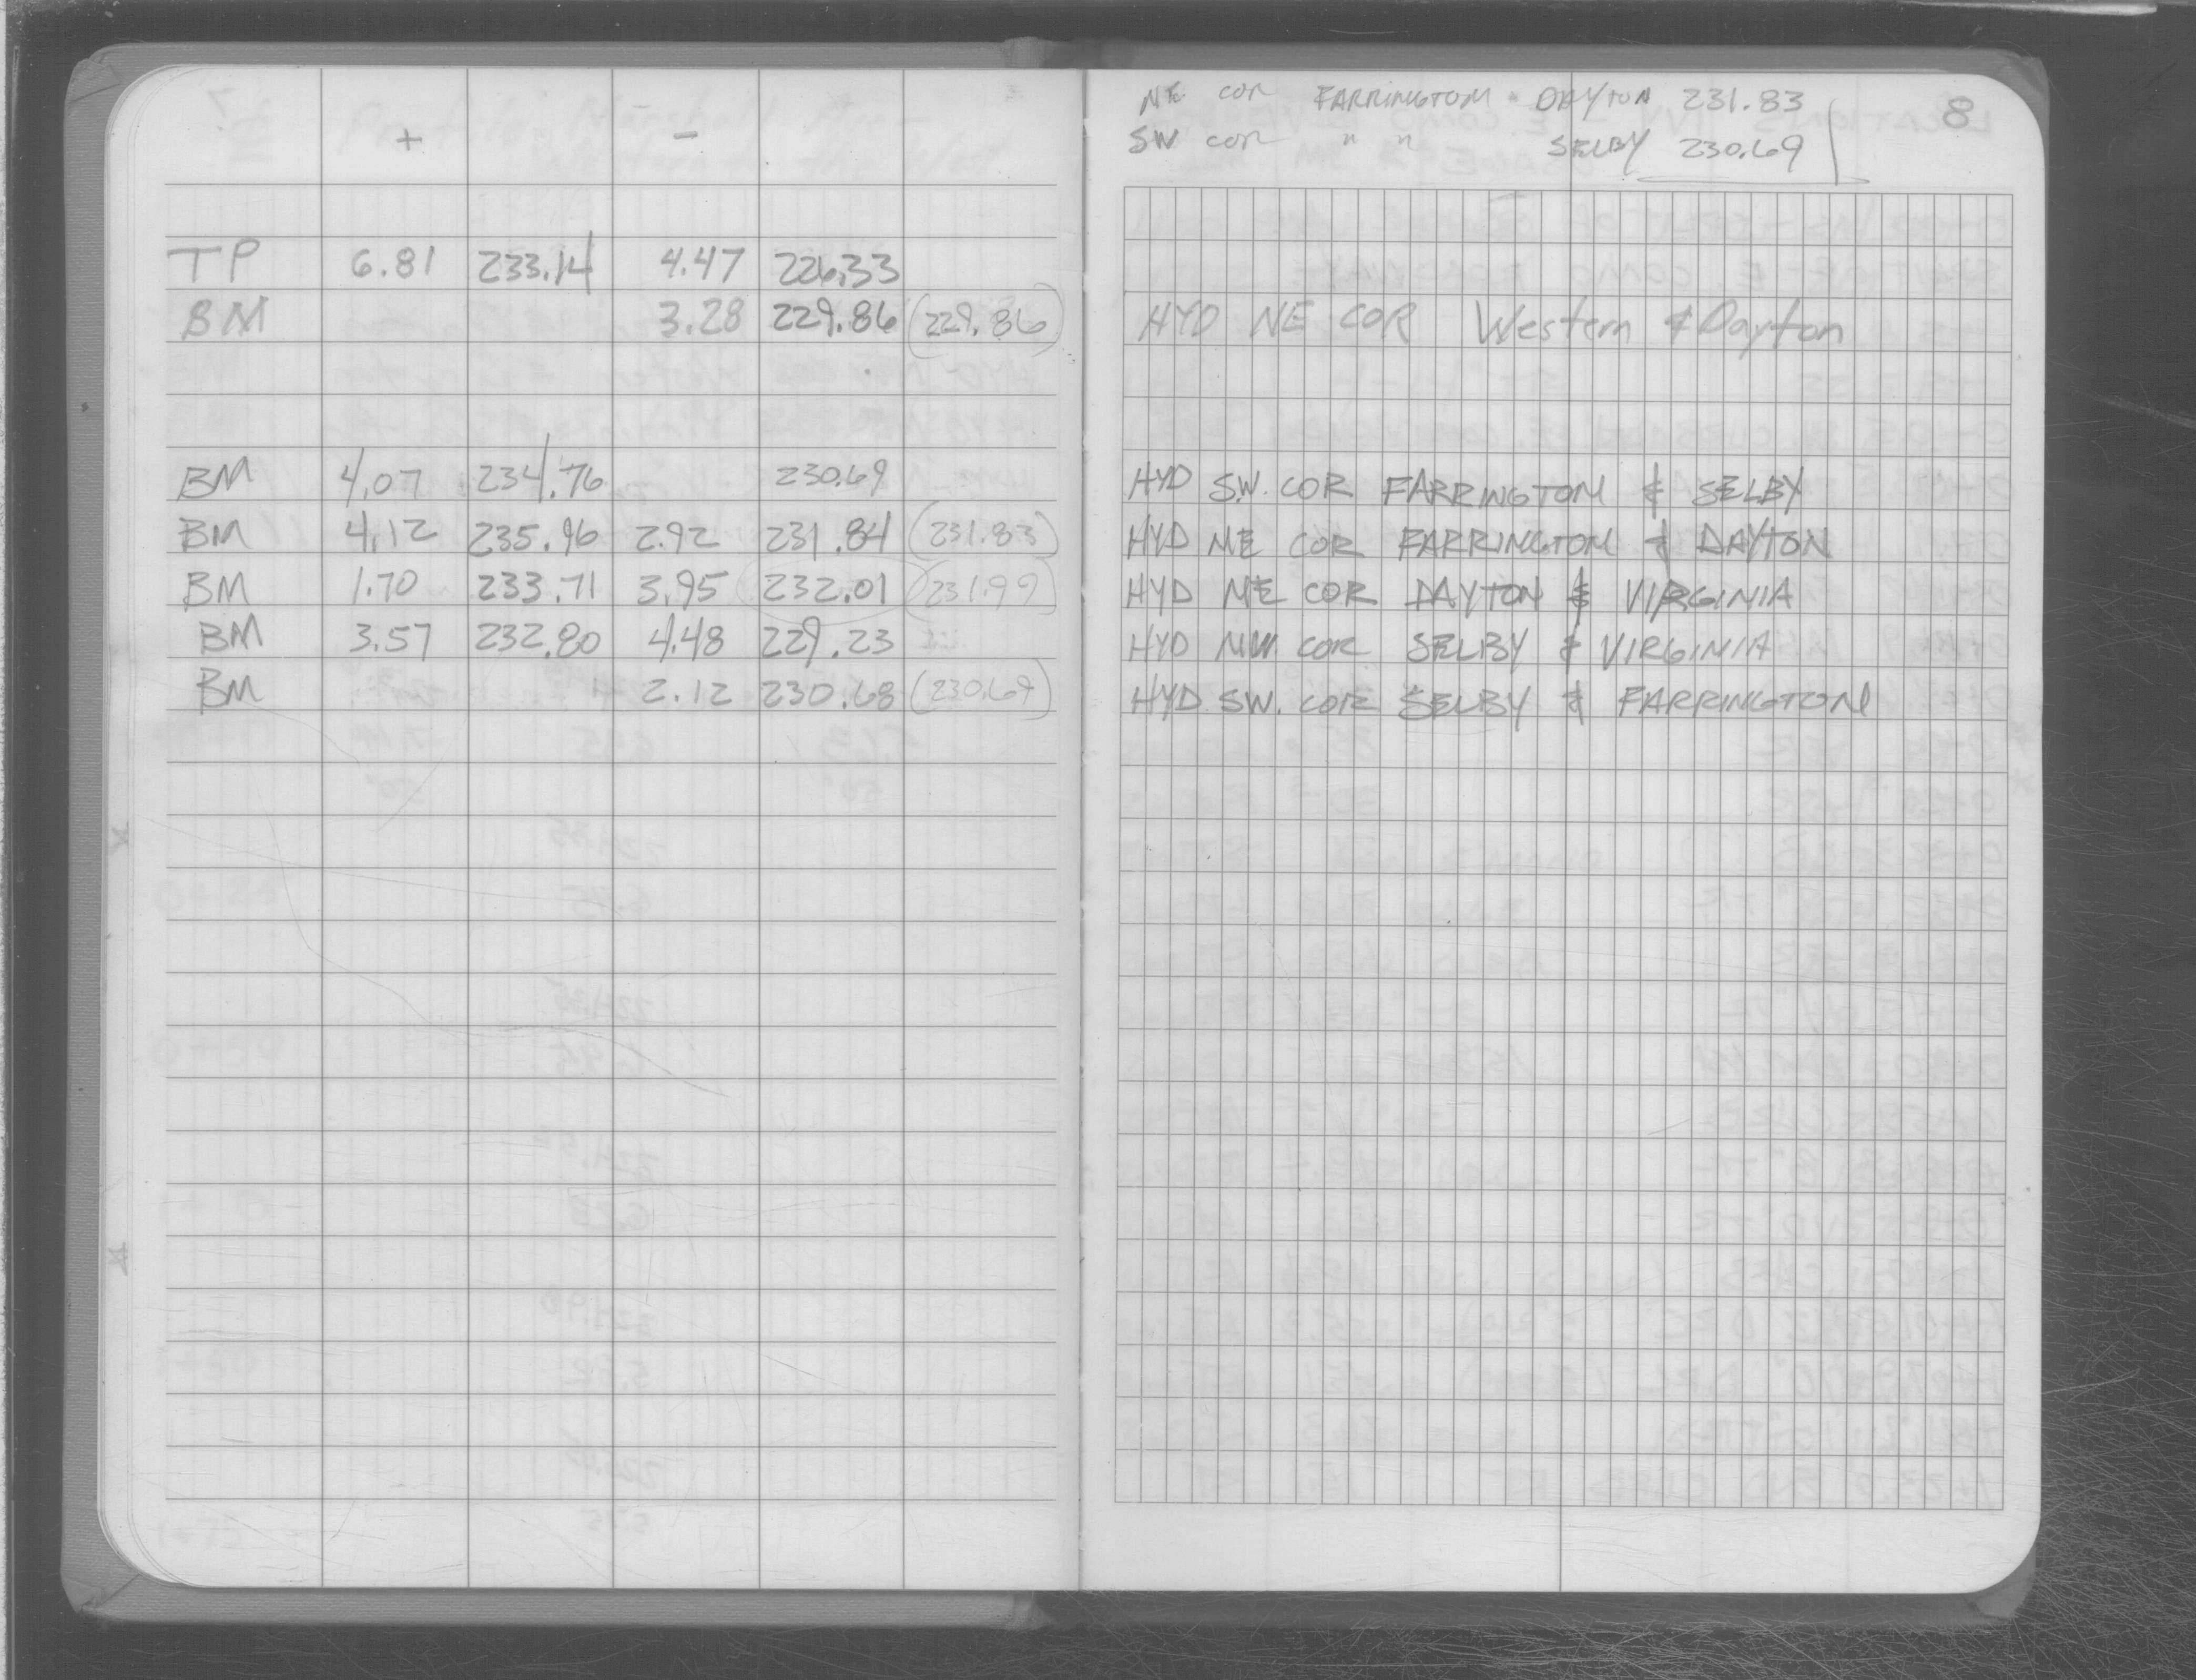 + -
TP 6.81 233.14 4.47 226.33
BM 3.28 229.86 (229.86)
BM 4.07 234.76 230.69
BM 4.12 235.96 2.92 231.84 (231.83)
BM 1.70 233.71 3.95 232.01 (231.99)
BM 3.57 232.80 4.48 229.23
BM 2.12 230.68 (230.69)
NE COR FARRINGTON & DAYTON 231.83
SW COR " " SELBY 230.69
8
HYD NE COR Western & Dayton
HYD S.W. COR FARRINGTON & SELBY
HYD NE COR FARRINGTON & DAYTON
HYD NE COR DAYTON & VIRGINIA
HYD NW. COR SELBY & VIRGINIA
HYD SW. COR SELBY & FARRINGTON